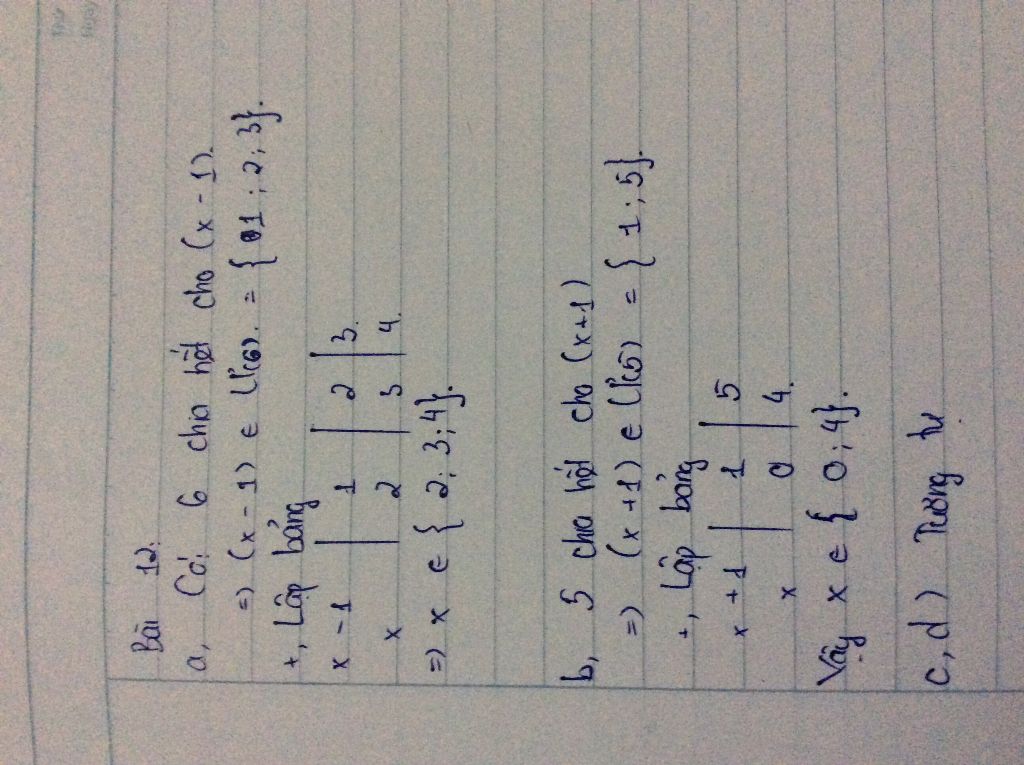 Bài 12.
a, Có: 6 chia hết cho (x - 1).
=) (x - 1) ∈ Ư(6). = { 1 ; 2 ; 3}.
+, Lập bảng
x - 1 | 1 | 2 | 3.
x | 2 | 3 | 4.
=) x ∈ { 2; 3; 4}.
b, 5 chia hết cho (x+1)
=) (x +1) ∈ Ư(5) = { 1 ; 5}.
+, Lập bảng
x + 1 | 1 | 5
x | 0 | 4.
Vậy x ∈ { 0; 4}.
c, d) Tương tự